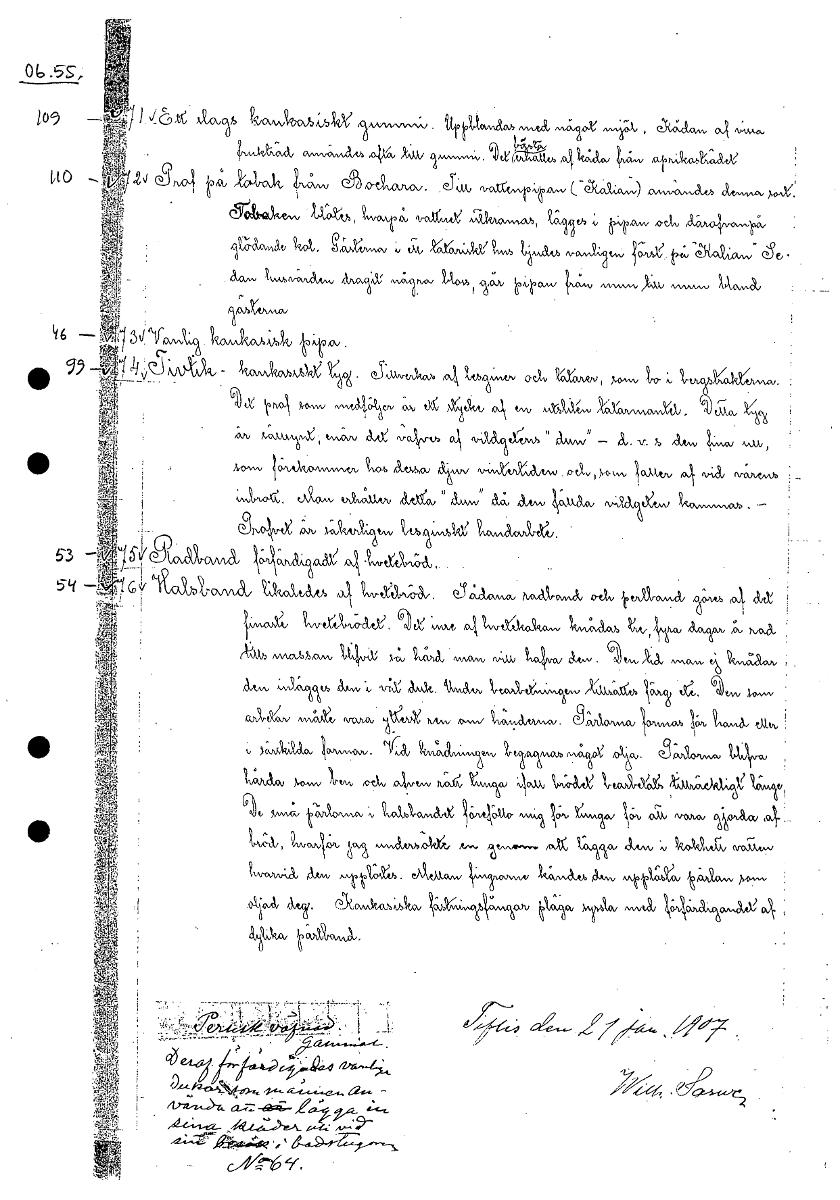 06.55.
109 — 71 Ett slags kaukasiskt gummi. Uppblandas med något mjöl. Kådan af vissa
fruktträd användes ofta till gummi. Det bästa erhålles af kåda från aprikosträdet
110 — 72 Prof på tobak från Bochara. Till vattenpipan ("Kalian") användes denna sort.
Tobaken blötes, hvarpå vattnet utkramas, lägges i pipan och därofvanpå
glödande kol. Gästerna i ett tatariskt hus bjudes vanligen först på "Kalian" Se-
dan husvärden dragit några bloss, går pipan från mun till mun bland
gästerna
46 — 73 Vanlig kaukasisk pipa.
99 — 74 Tivtik - kaukasiskt tyg. Tillverkas af lesginer och tatarer, som bo i bergstrakterna.
Det prof som medföljer är ett stycke af en utsliten tatarmantel. Detta tyg
är sällsynt, enär det väfves af vildgetens "dun" — d. v. s den fina ull,
som förekommer hos dessa djur vintertiden och, som faller af vid vårens
inbrott. Man erhåller detta "dun" då den fällda vildgeten kammas. —
Profvet är säkerligen lesginskt handarbete.
53 — 75 Radband förfärdigadt af hvetebröd.
54 — 76 Halsband likaledes af hvetebröd. Sådana radband och perlband göres af det
finaste hvetebrödet. Det inre af hvetekakan knådas tre, fyra dagar å rad
tills massan blifvit så hård man vill hafva den. Den tid man ej knådar
den inlägges den i våt duk. Under bearbetningen tillsättes färg etc. Den som
arbetar måste vara ytterst ren om händerna. Pärlorna formas för hand eller
i särskilda formar. Vid knådningen begagnas något olja. Pärlorna blifva
hårda som ben och äfven rätt tunga ifall brödet bearbetats tillräckligt länge.
De små pärlorna i halsbandet föreföllo mig för tunga för att vara gjorda af
bröd, hvarför jag undersökte en genom att lägga den i kokhett vatten
hvarvid den upplöstes. Mellan fingrarne kändes den upplösta pärlan som
oljad deg. Kaukasiska fästningsfångar pläga syssla med förfärdigandet af
dylika pärlband.
Persisk väfnad
Gammal.
Deraf förfärdigades vanlige
dukar som männen an-
vända att lägga in
sina kläder uti vid
sitt besök i badstugan
No 64.
Tiflis den 21 jan. 1907.
Wilh.